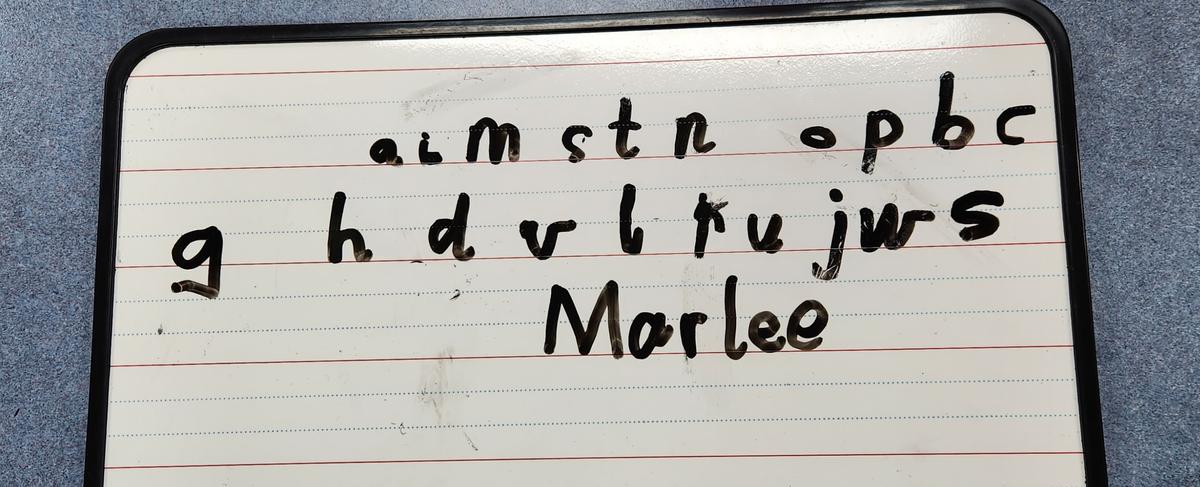 a i m s t n o p b c
g h d v l r u j w s
Marlee